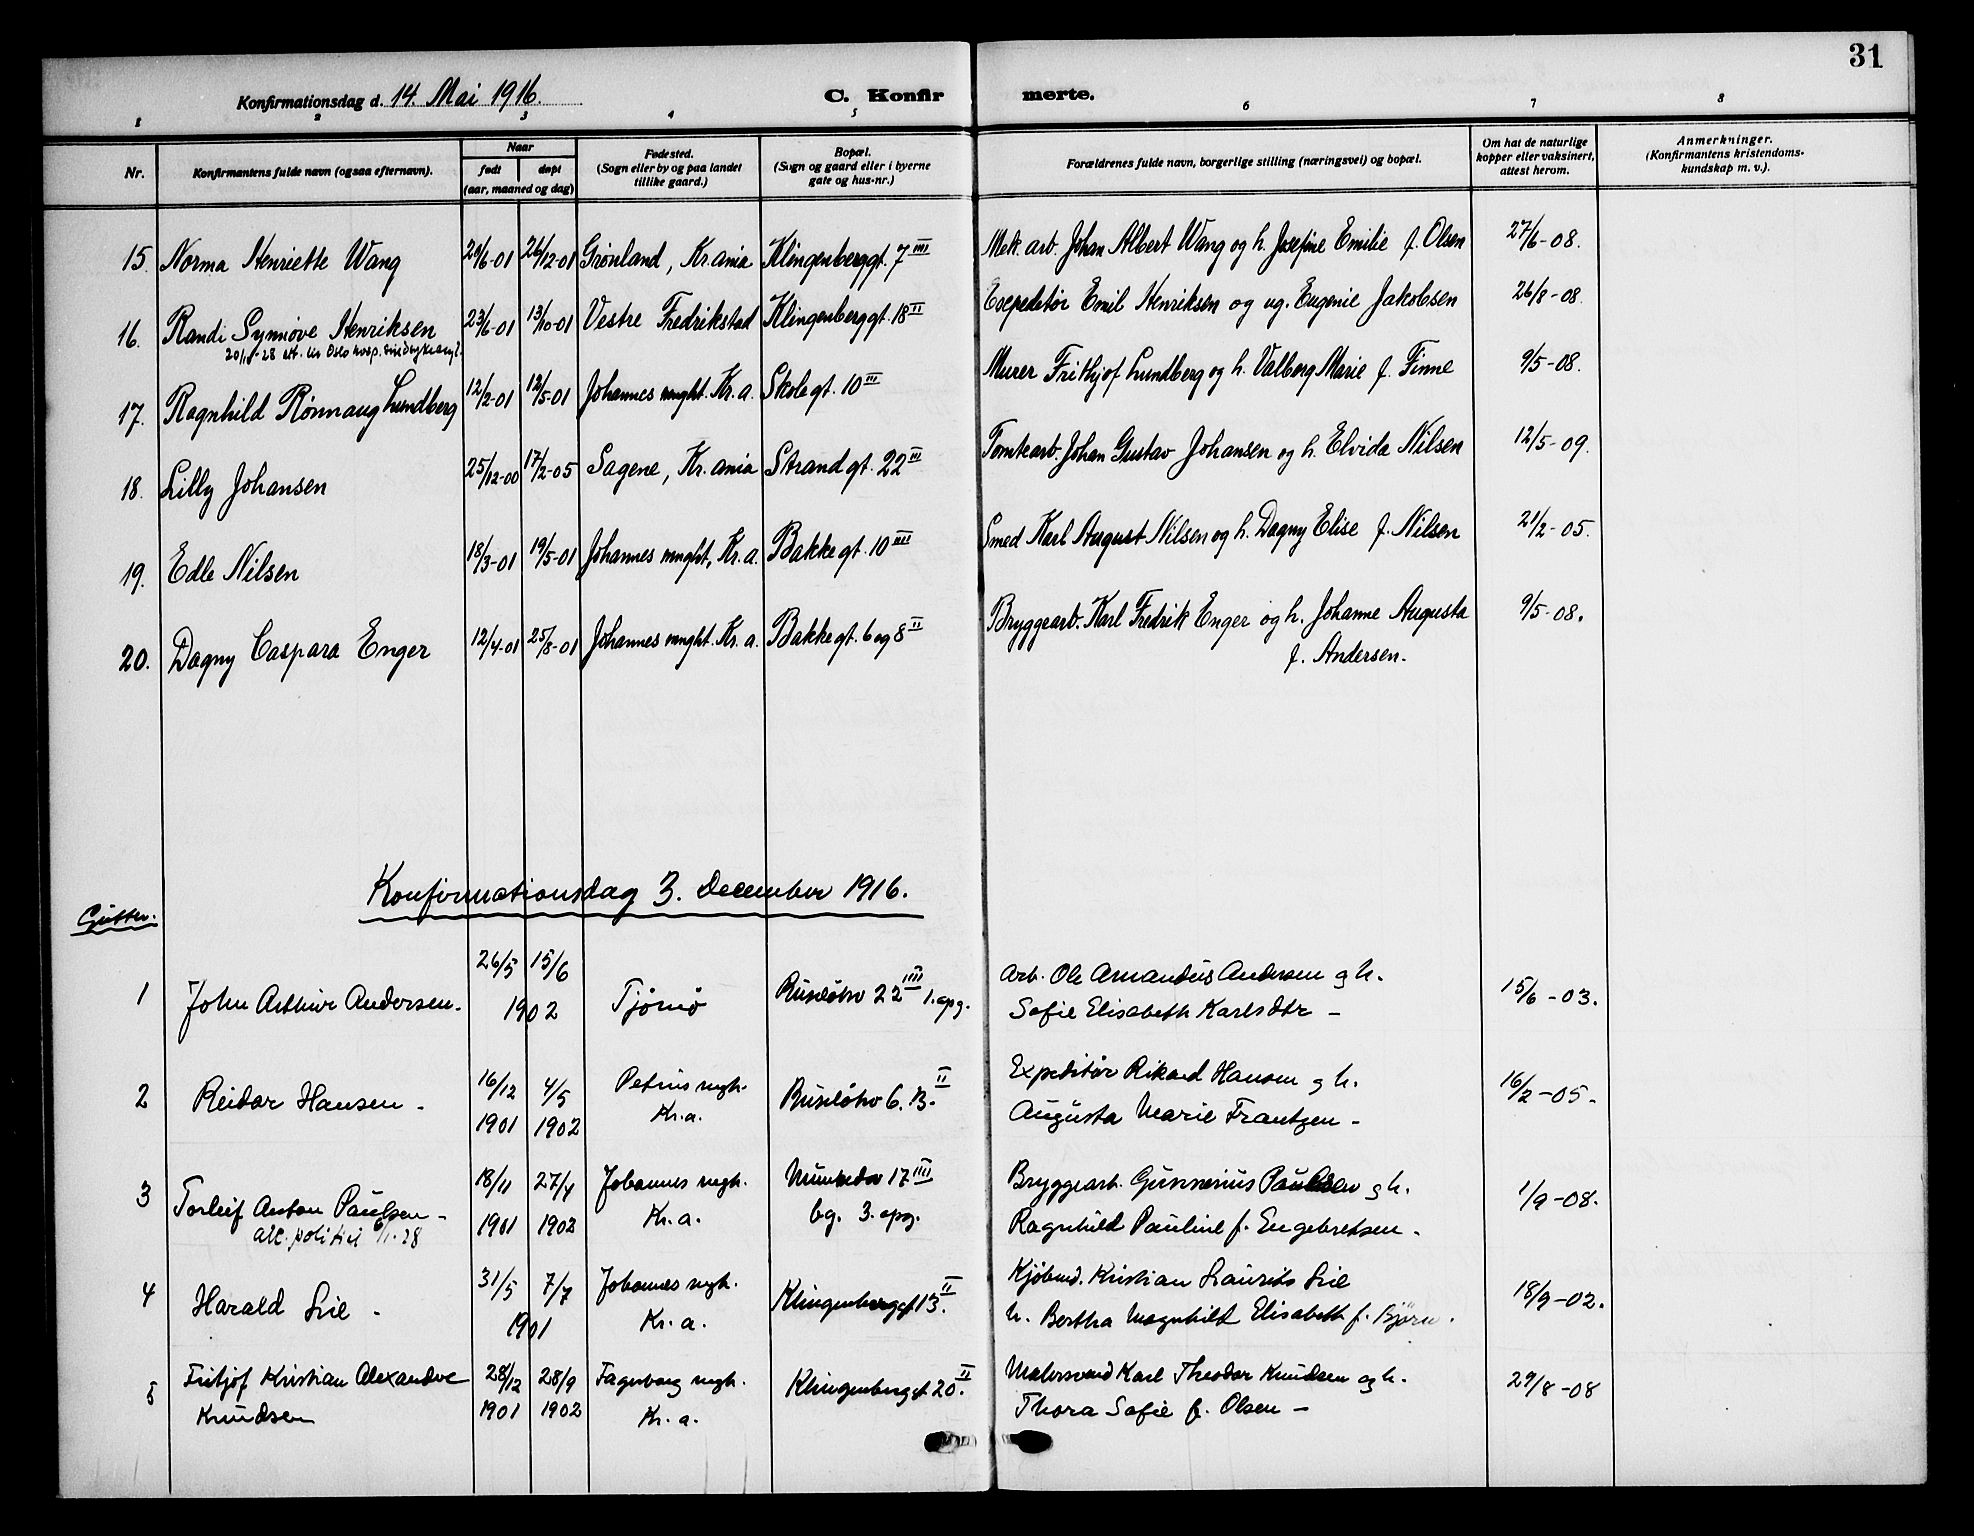 31
Konfirmationsdag d. 14. Mai 1916.
C. Konfirmerte.
1 2 3 4 5 6 7 8
Nr.
Konfirmantens fulde navn (ogsaa efternavn).
Naar
født døpt
(aar, maaned og dag)
Fødested.
(Sogn eller by og paa landet
tillike gaard.)
Bopæl.
(Sogn og gaard eller i byerne
gate og hus-nr.)
Forældrenes fulde navn, borgerlige stilling (næringsvei) og bopæl.
Om hat de naturlige
kopper eller vaksinert,
attest herom.
Anmerkninger.
(Konfirmantens kristendoms-
kundskap m. v.).
15. Norma Henriette Wang 29/6-01 26/12-01 Grønland, Kr.ania Klingenberggt. 7 IIII Mek. arb. Johan Albert Wang og h. Josefine Emilie f. Olsen 27/6-08.
16. Randi Synnøve Henriksen 23/6-01 13/10-01 Vestre Fredrikstad Klingenberggt. 18 II Expeditør Emil Henriksen og ug. Eugenie Jakobsen 26/8-08.
28 att. til Oslo hosp.
17. Ragnhild Rønnaug Lundberg 12/2-01 12/5-01 Johannes mnght. Kr.a. Skolegt. 10 III Murer Frithjof Lundberg og h. Valborg Marie f. Finne 9/5-08.
18. Lilly Johansen 25/12-00 17/2-05 Sagene, Kr.ania Strandgt. 22 III Tomtearb. Johan Gustav Johansen og h. Elvida Nilsen 12/5-09.
19. Edle Nilsen 18/3-01 19/5-01 Johannes mnght, Kr.a. Bakkegt. 10 IIII Smed Karl August Nilsen og h. Dagny Elise f. Nilsen 21/2-05.
20. Dagny Caspara Enger 12/4-01 25/8-01 Johannes mnght. Kr.a. Bakkegt. 6 og 8 II Bryggearb. Karl Fredrik Enger og h. Johanne Augusta 9/5-08.
f. Andersen.
Konfirmationsdag 3. December 1916.
Gutter.
1 John Arthur Andersen. 26/5 15/6 1902 Tjømø Ruseløkv 22 IIII 1. opg. Arb. Ole Amandus Andersen og h. 15/6-03.
Sofie Elisabeth Karlsdtr -
2 Reidar Hansen - 16/12 4/5 Petrus mgh. Ruseløkv 6. B. II Expeditør Rikard Hansen og h. 16/2-05.
1901 1902 Kr.a. Augusta Marie Frantzen -
3 Torleif Anton Paulsen - 18/11 27/4 Johannes mgh. Munkedv 17 IIII Bryggearb. Gunnerius Paulsen og h. 1/9-08.
att. politiet 6/1-28 1901 1902 Kr.a. bg. 3. opg. Ragnhild Pauline f. Engebretsen -
4 Harald Lie - 31/5 7/7 Johannes mgh. Klingenberggt 13. II Kjøbmd. Kristian Laurits Lie 18/9-02.
1901 Kr.a. h. Bertha Magnhild Elisabeth f. Bjørn.
5 Fritjof Kristian Alexander 28/12 28/9 Fagerborg mgh. Klingenberggt 20. II Malersvend Karl Theodor Knudsen og h. 29/8-08
Knudsen 1901 1902 Kr.a. Thora Sofie f. Olsen -